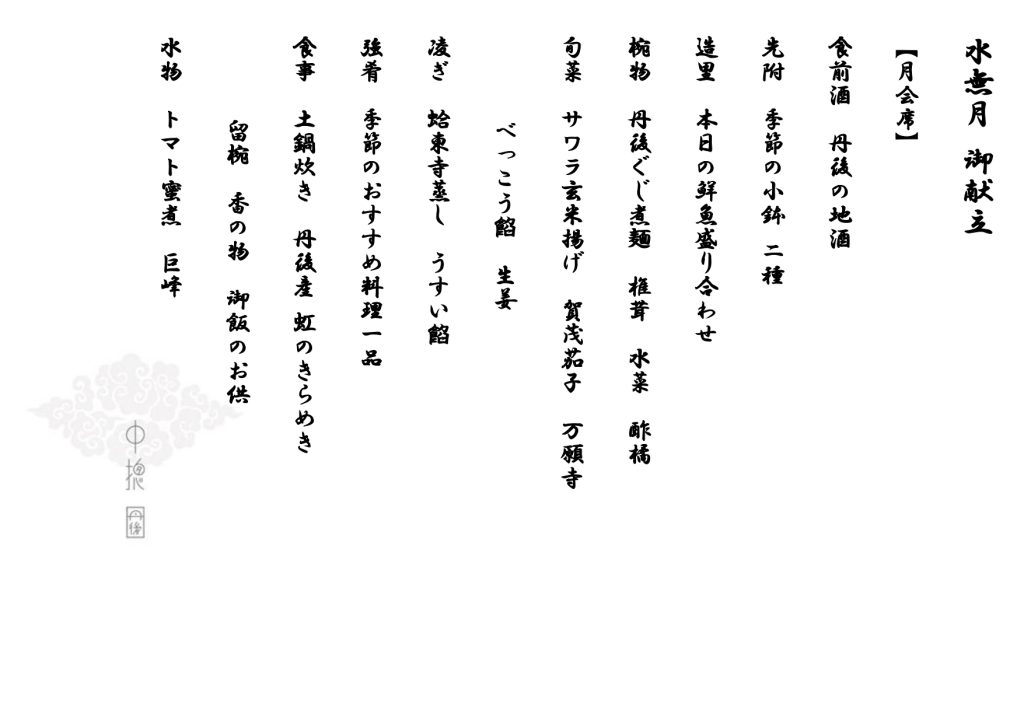 水無月 御献立
【月会席】
食前酒 丹後の地酒
先附 季節の小鉢 二種
造里 本日の鮮魚盛り合わせ
椀物 丹後ぐじ煮麺 椎茸 水菜 酢橘
旬菜 サワラ玄米揚げ 賀茂茄子 万願寺
べっこう餡 生姜
凌ぎ 蛤東寺蒸し うすい餡
強肴 季節のおすすめ料理一品
食事 土鍋炊き 丹後産 虹のきらめき
留椀 香の物 御飯のお供
水物 トマト蜜煮 巨峰
中
丹後